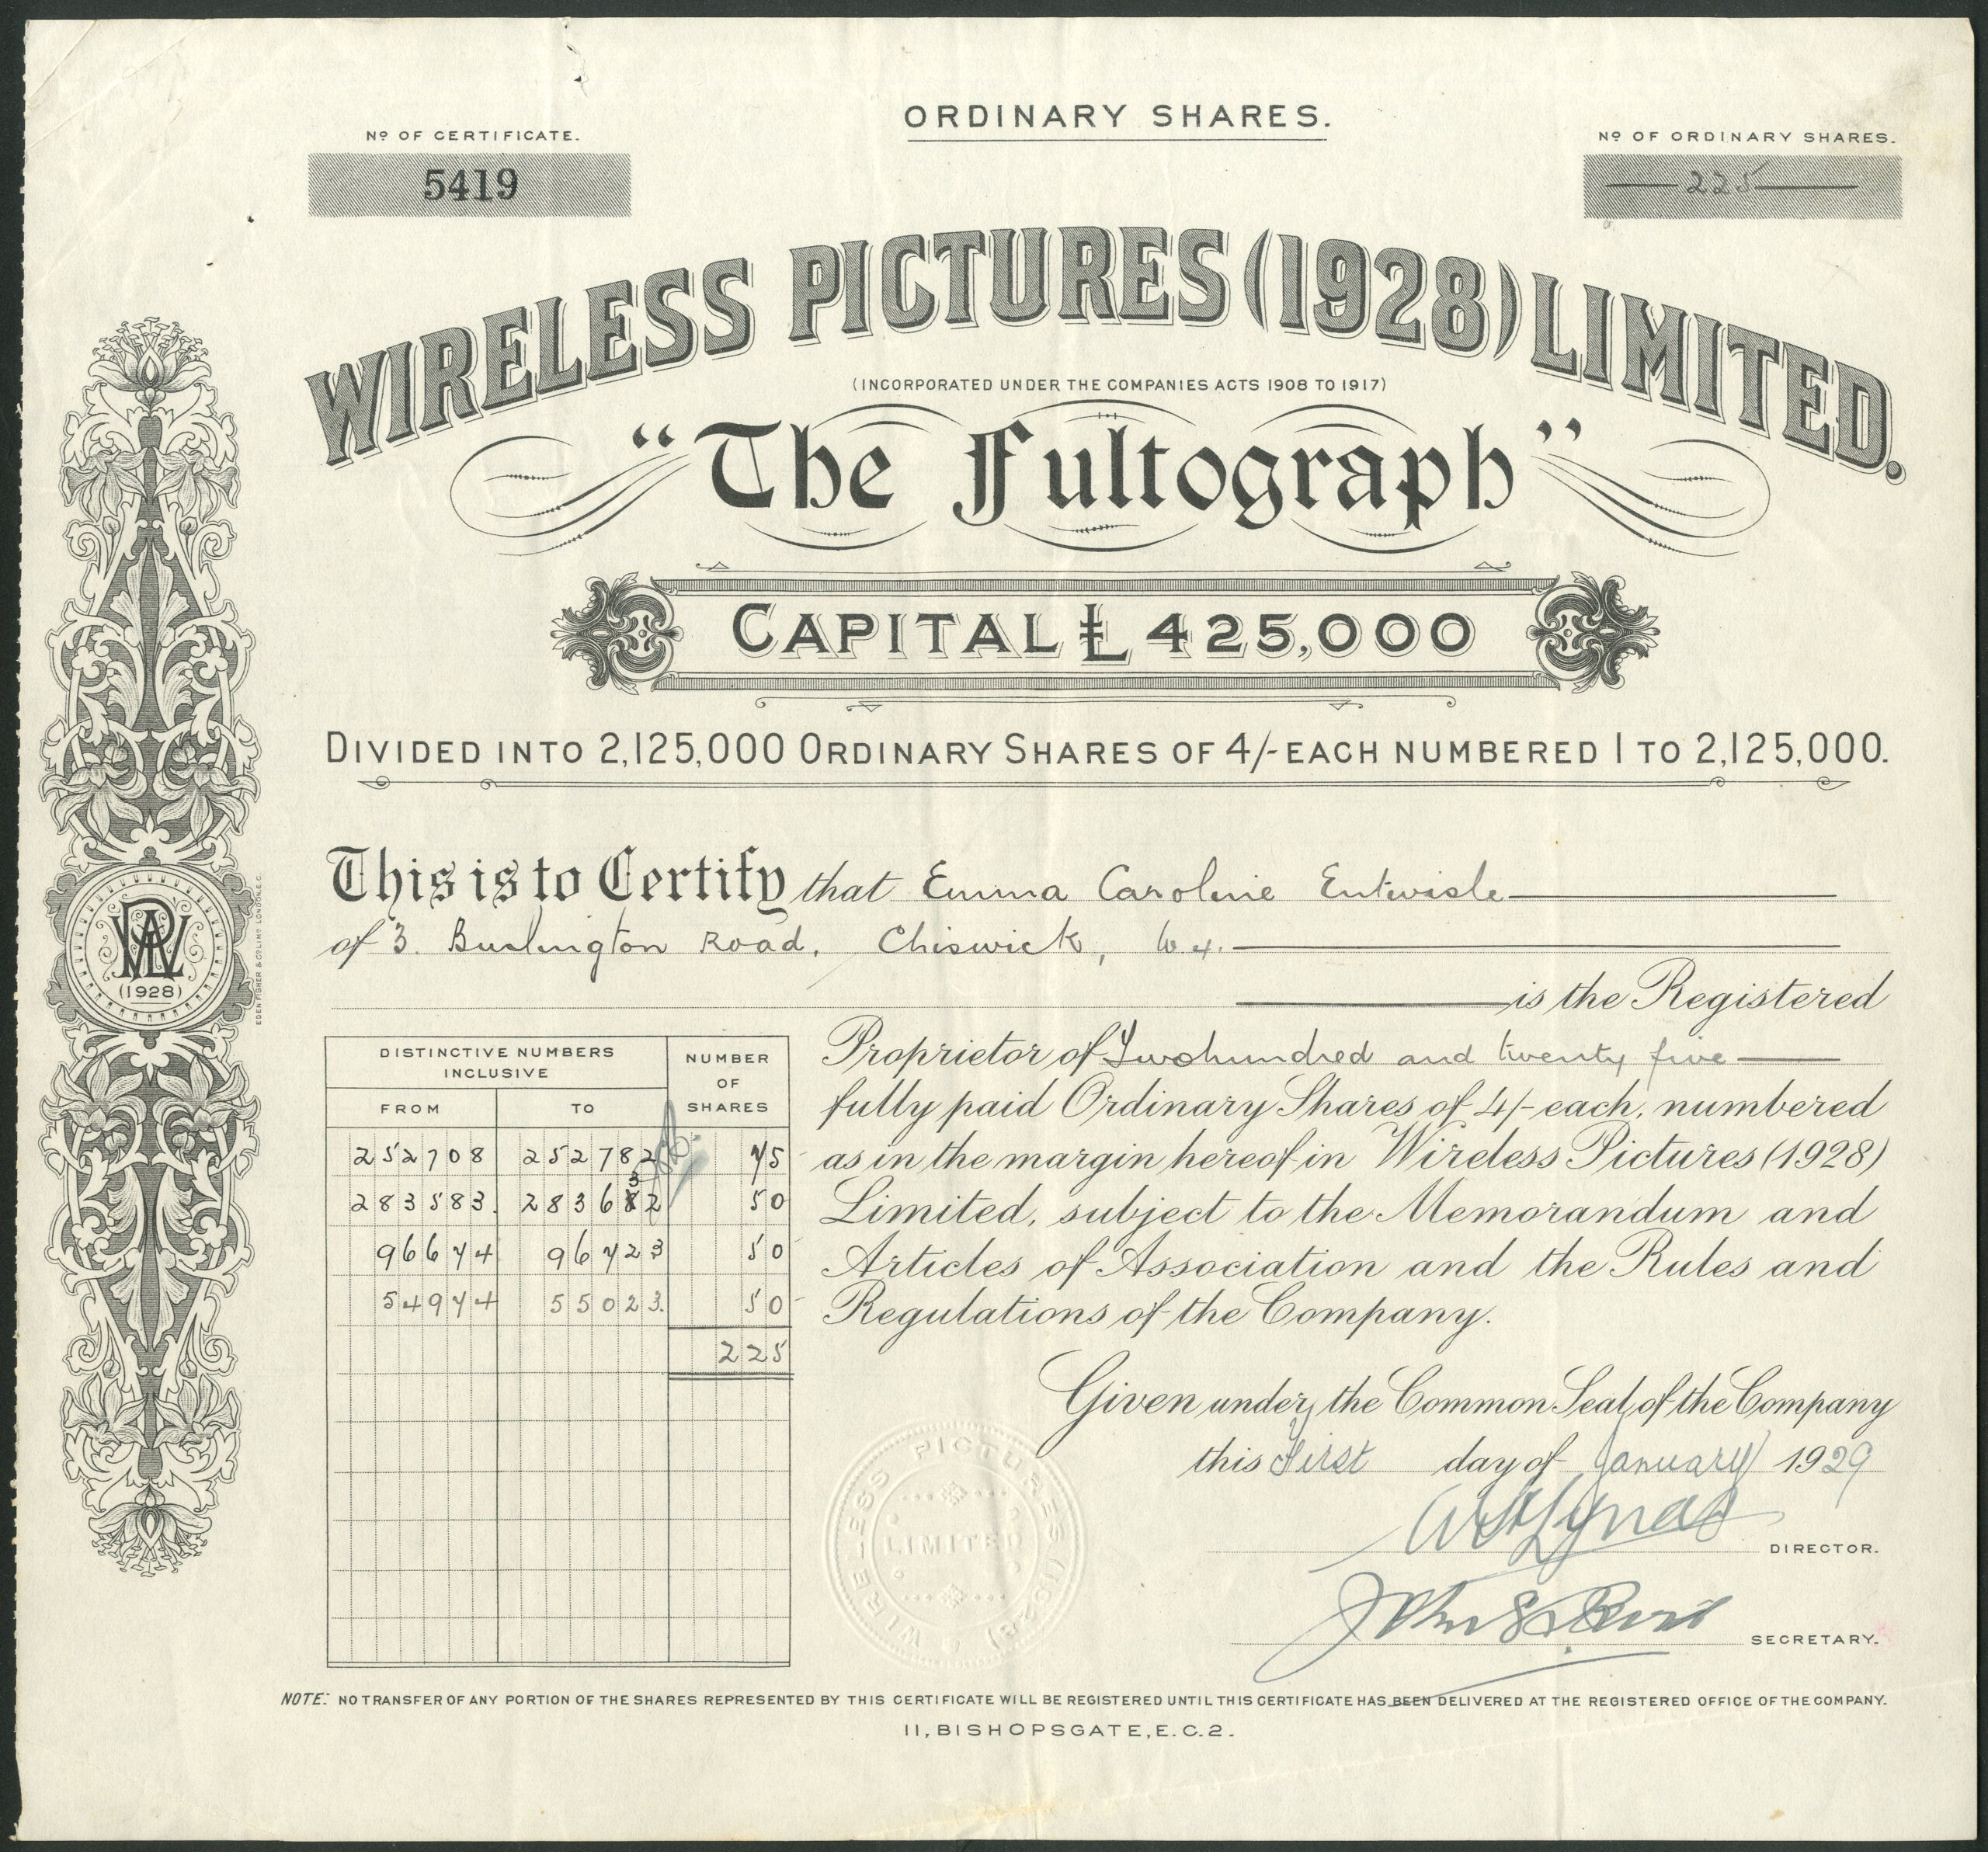 ORDINARY SHARES.
Nº OF CERTIFICATE.
5419
Nº OF ORDINARY SHARES.
225
WIRELESS PICTURES (1928) LIMITED.
(INCORPORATED UNDER THE COMPANIES ACTS 1908 TO 1917)
"The Fultograph"
CAPITAL £425,000
DIVIDED INTO 2,125,000 ORDINARY SHARES OF 4/- EACH NUMBERED 1 TO 2,125,000.
This is to Certify that Emma Caroline Entwisle
of 3. Burlington Road, Chiswick, W.4.
is the Registered
Proprietor of Two hundred and twenty five
fully paid Ordinary Shares of 4/- each, numbered
as in the margin hereof in Wireless Pictures (1928)
Limited, subject to the Memorandum and
Articles of Association and the Rules and
Regulations of the Company.
DISTINCTIVE NUMBERS INCLUSIVE
NUMBER OF SHARES
FROM TO
252708 252782 75
283583. 283632 50
96674 96723 50
54974 55023. 50
225
Given under the Common Seal of the Company
this First day of January 1929
DIRECTOR.
SECRETARY.
WIRELESS PICTURES (1928)
LIMITED
NOTE: NO TRANSFER OF ANY PORTION OF THE SHARES REPRESENTED BY THIS CERTIFICATE WILL BE REGISTERED UNTIL THIS CERTIFICATE HAS BEEN DELIVERED AT THE REGISTERED OFFICE OF THE COMPANY.
11, BISHOPSGATE, E.C.2.
(1928)
EDEN FISHER & CO LIMD LONDON. E.C.